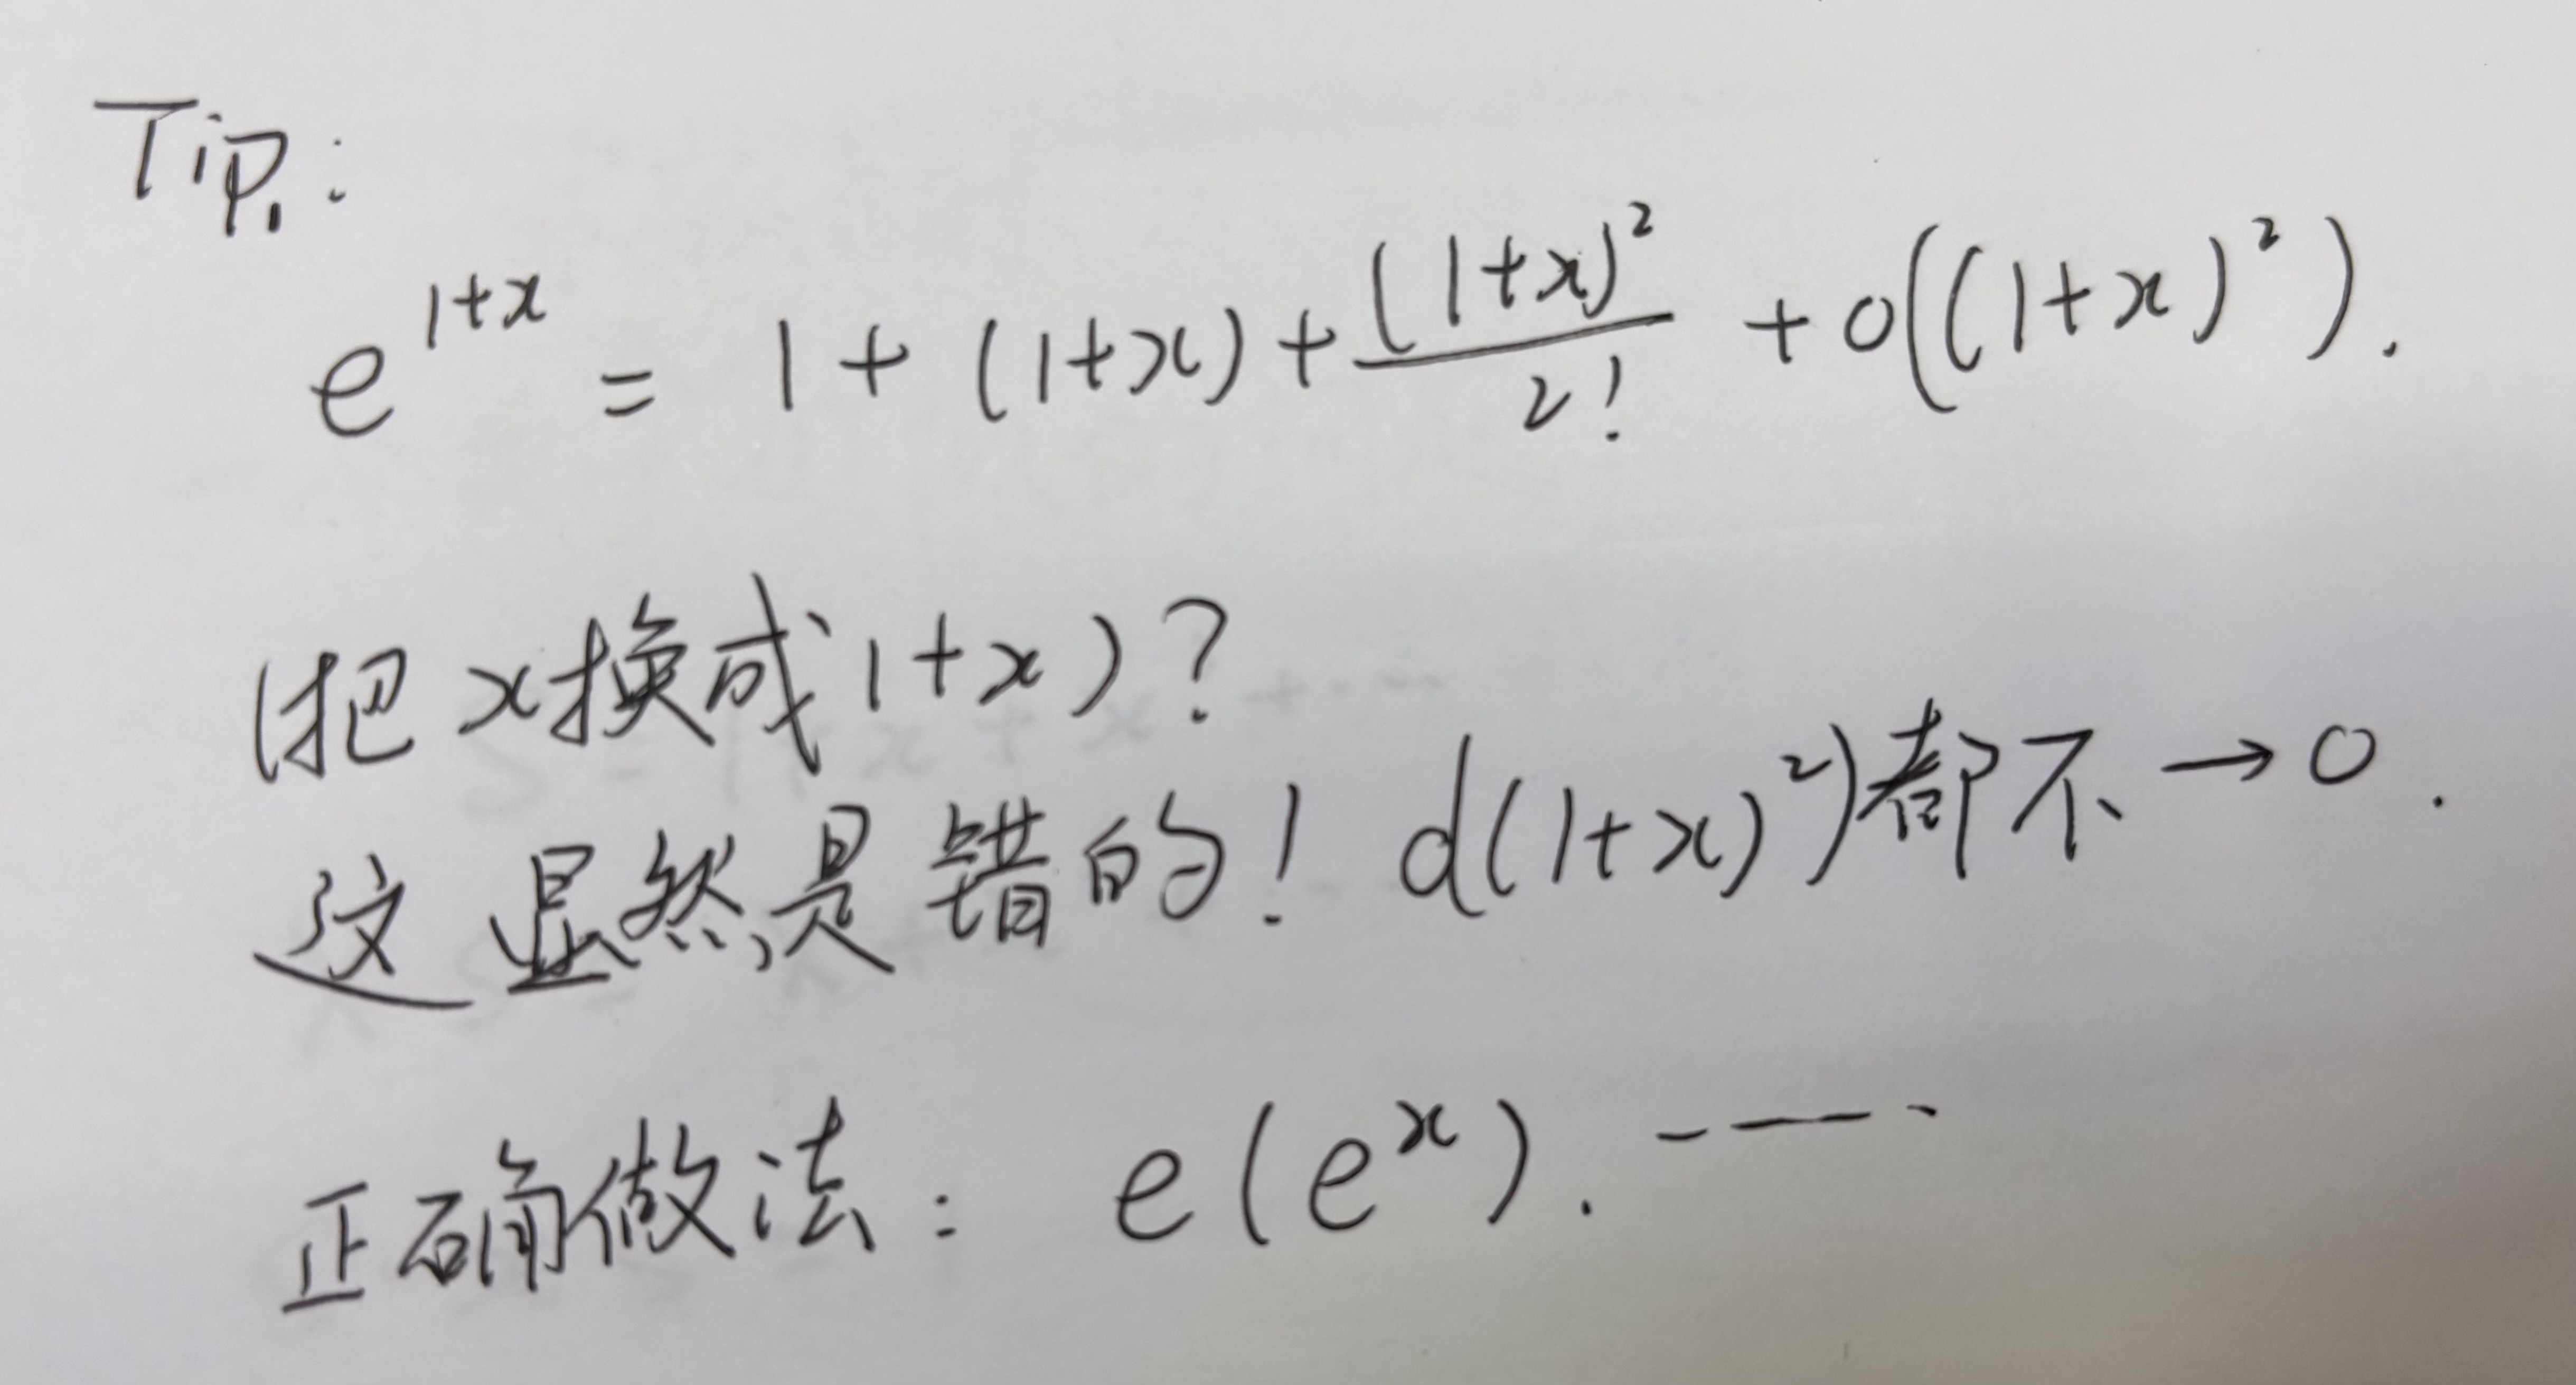 Tip:
e^{1+x} = 1 + (1+x) + \frac{(1+x)^2}{2!} + o((1+x)^2).
(把x换成1+x)?
这显然是错的! d(1+x)^2)都不→0.
正确做法: e(e^x). ——·